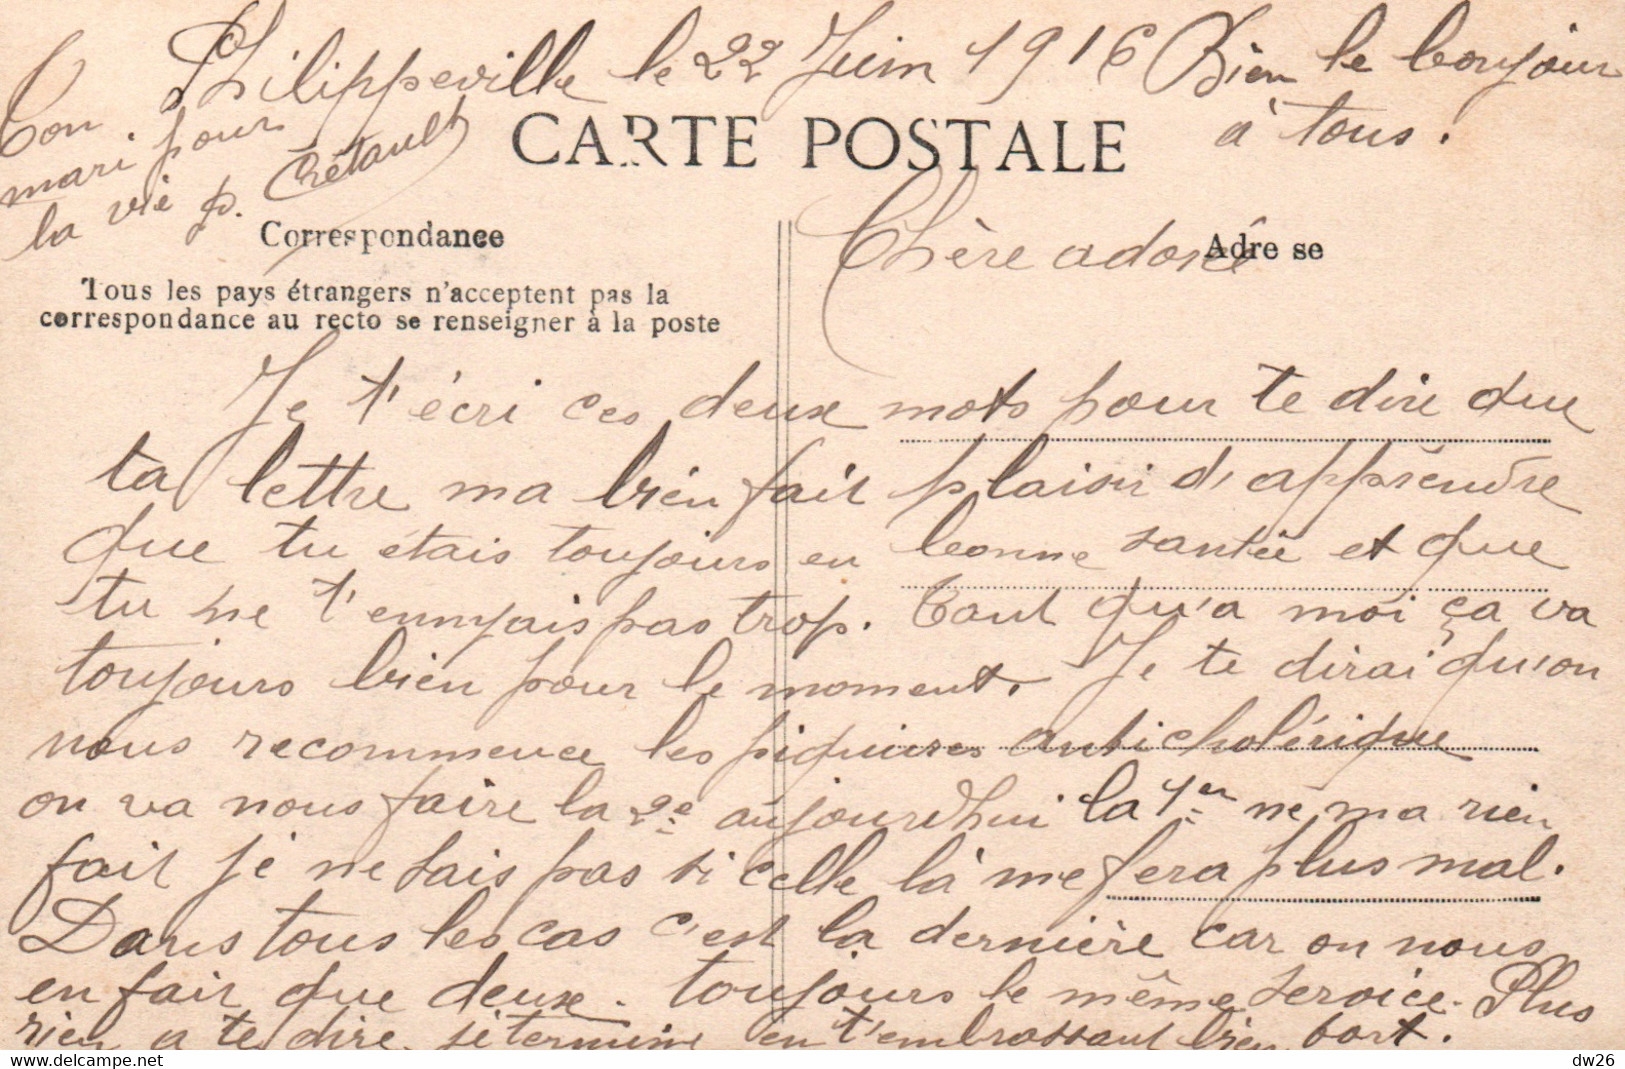 Philippeville le 22 Juin 1916 Bien le bonjour
à tous.
CARTE POSTALE
Correspondance
Adre se
Tous les pays étrangers n'acceptent pas la
correspondance au recto se renseigner à la poste
Chère adoré
Je t'écri ces deux mots pour te dire que
ta lettre ma bien fait plaisir d'apprendre
que tu étais toujours en bonne santée et que
tu ne t'ennyais pas trop. Tant qu'a moi ça va
toujours bien pour le moment. Je te dirai qu'on
nous recommence les piquires anticholérique
on va nous faire la 2e aujourdhui la 1er ne ma rien
fait je ne sais pas si celle là me fera plus mal.
Dans tous les cas c'est la dernière car on nous
en fait que deux. toujours le même service. Plus
rien a te dire je termine en t'embrassant bien fort.
Ton
mari pour
la vie p. Crétault
dw26
delcampe.net